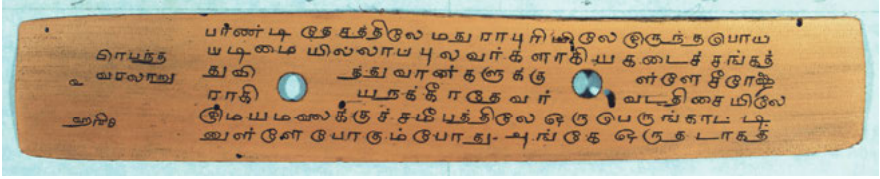 பாண்டி தேசத்திலே மதுராபுரியிலே இருந்தபொய
யடிமை யில்லாப புலவர்க ளாகிய கடைச் சங்கத்
வரலாறு துவி த்துவான்களுக்கு ள்ளே
ராகி யநக்கீரதேவர் வடதிசையிலே
இமயமலைக்குச் சமீபத்திலே ஒருபெருங்காட்டி
னுள்ளே போகும்போது- அங்கே ஒருதடாகத்